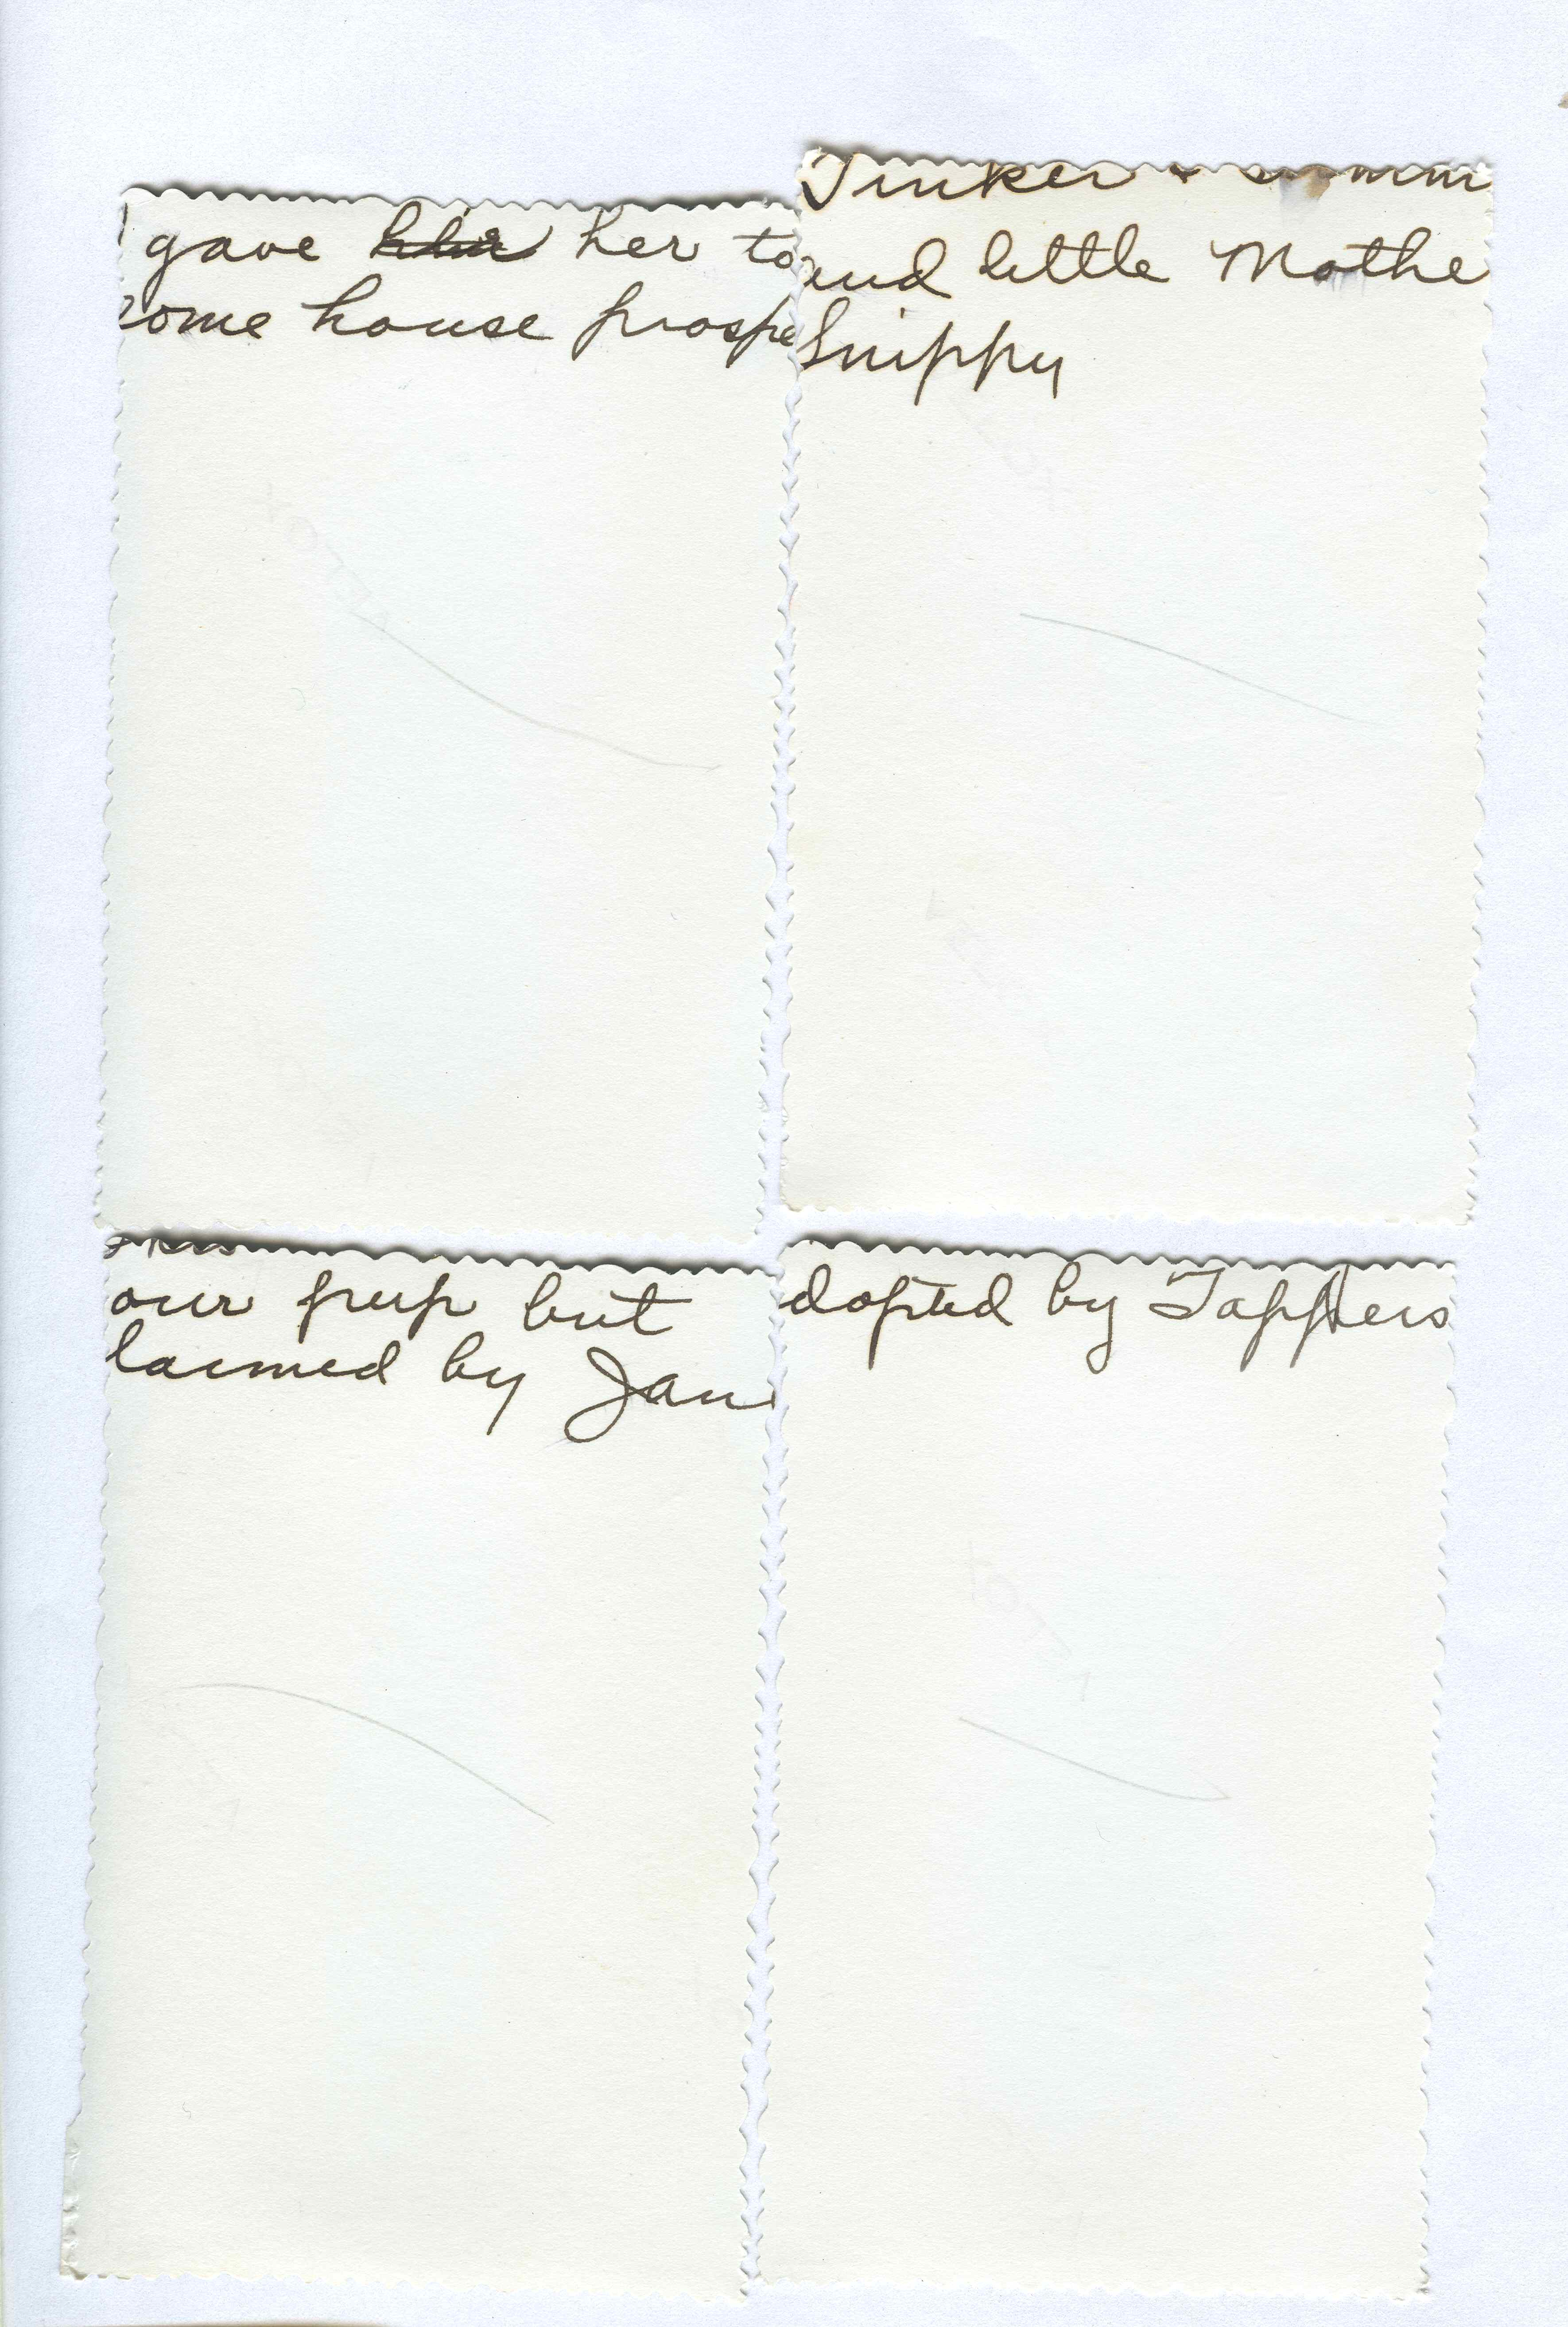 gave her to
ome house prospe
Tinker &
and little Mothe
Snippy
our pup but
laimed by Jan
dopted by Tappers